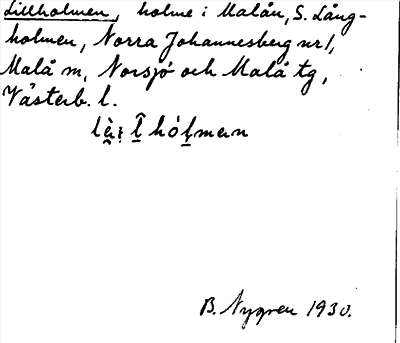 Lillholmen, holme i Malån, S. Lång-
holmen, Norra Johannesberg nr 1,
Malå m, Norsjö och Malå tg,
Västerb. l.
B. Nygren 1930.